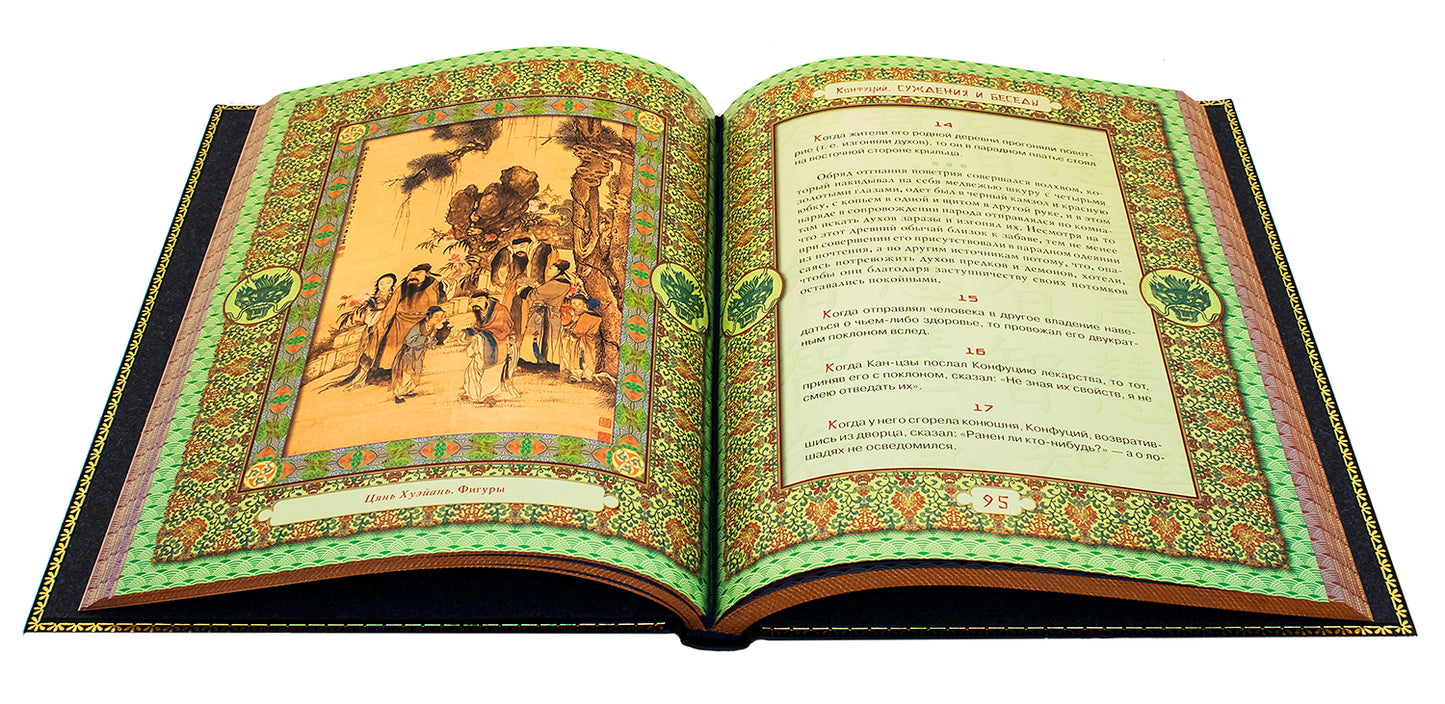 Цянь Хуэйань. Фигуры
Конфуций. СУЖДЕНИЯ И БЕСЕДЫ
14
Когда жители его родной деревни прогоняли повет-
рие (т. е. изгоняли духов), то он в парадном платье стоял
на восточной стороне крыльца.
Обряд отгнания поветрия совершался волхвом, ко-
торый накидывал на себя медвежью шкуру с четырьмя
золотыми глазами, одет был в черный камзол и красную
юбку, с копьем в одной и щитом в другой руке, и в этом
наряде в сопровождении народа отправлялся по комна-
там искать духов заразы и изгонял их. Несмотря на то
что этот древний обычай близок к забаве, тем не менее
при совершении его присутствовали в парадном одеянии
из почтения, а по другим источникам потому, что, опа-
саясь потревожить духов предков и демонов, хотели,
чтобы они благодаря заступничеству своих потомков
оставались покойными.
15
Когда отправлял человека в другое владение наве-
даться о чьем-либо здоровье, то провожал его двукрат-
ным поклоном вслед.
16
Когда Кан-цзы послал Конфуцию лекарства, то тот,
приняв его с поклоном, сказал: «Не зная их свойств, я не
смею отведать их».
17
Когда у него сгорела конюшня, Конфуций, возвратив-
шись из дворца, сказал: «Ранен ли кто-нибудь?» — а о ло-
шадях не осведомился.
95